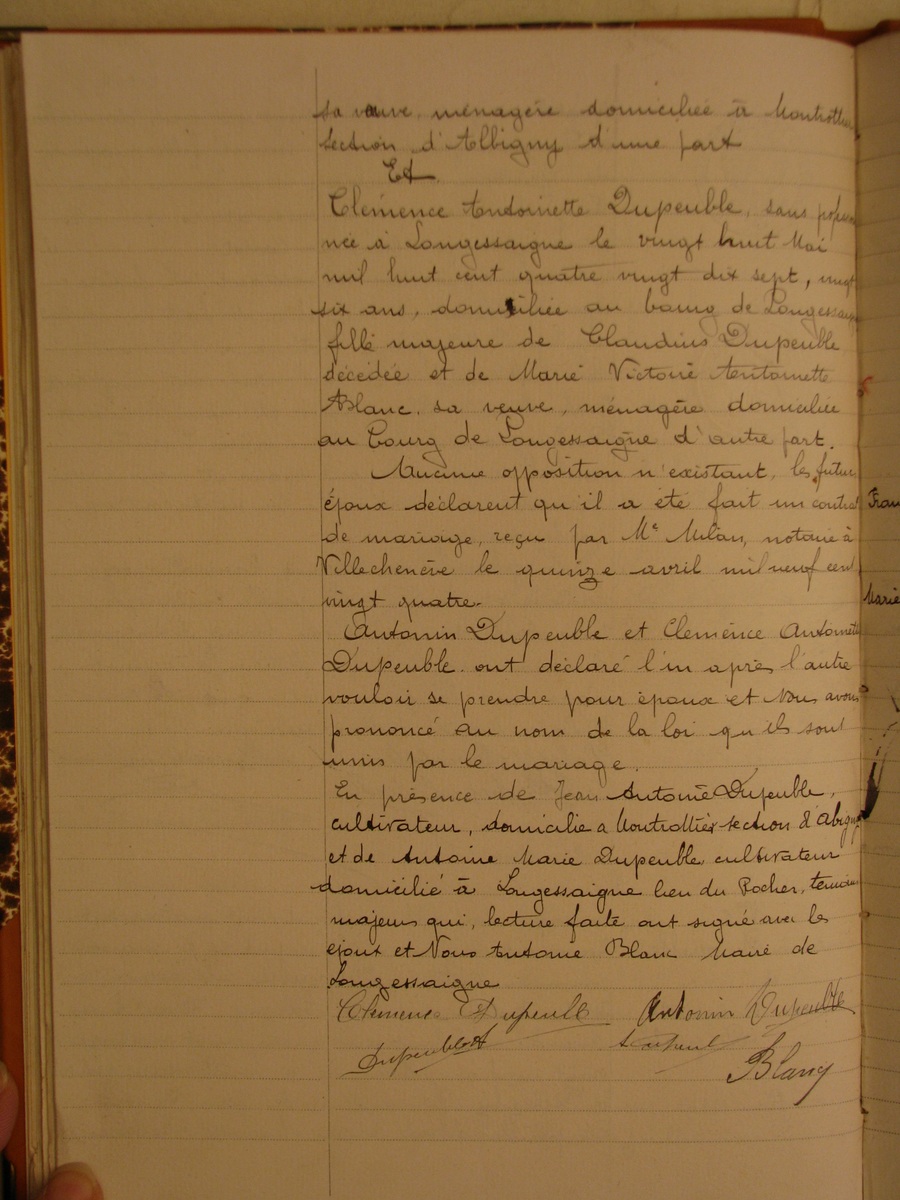 sa veuve, ménagère domiciliée à Montrottier
section d'Albigny d'une part
Et
Clémence Antoinette Dupeuble, sans profession
née à Longessaigne le vingt huit Mai
mil huit cent quatre vingt dix sept, vingt
six ans, domiciliée au bourg de Longessaigne
fille majeure de Claudius Dupeuble
décédée et de Marie Victorie Antoinette
Blanc, sa veuve, ménagère domiciliée
au bourg de Longessaigne d'autre part.
Aucune opposition n'existant, les futurs
époux déclarent qu'il a été fait un contrat
de mariage, reçu par Me Milan, notaire à
Villechenève le quinze avril mil neuf cent
vingt quatre.
Antonin Dupeuble et Clémence Antoinette
Dupeuble ont déclaré l'un après l'autre
vouloir se prendre pour époux et Nous avons
prononcé au nom de la loi qu'ils sont
unis par le mariage.
En présence de Jean Antoine Dupeuble,
cultivateur, domicilié a Montrottier section d'Albigny
et de Antoine Marie Dupeuble cultivateur
domicilié à Longessaigne lieu du Rocher, témoins
majeurs qui, lecture faite ont signé avec les
époux et Nous Antoine Blanc Maire de
Longessaigne
Clémence Dupeuble Antonin Dupeuble
Dupeuble
Blanc
Fran
Marie